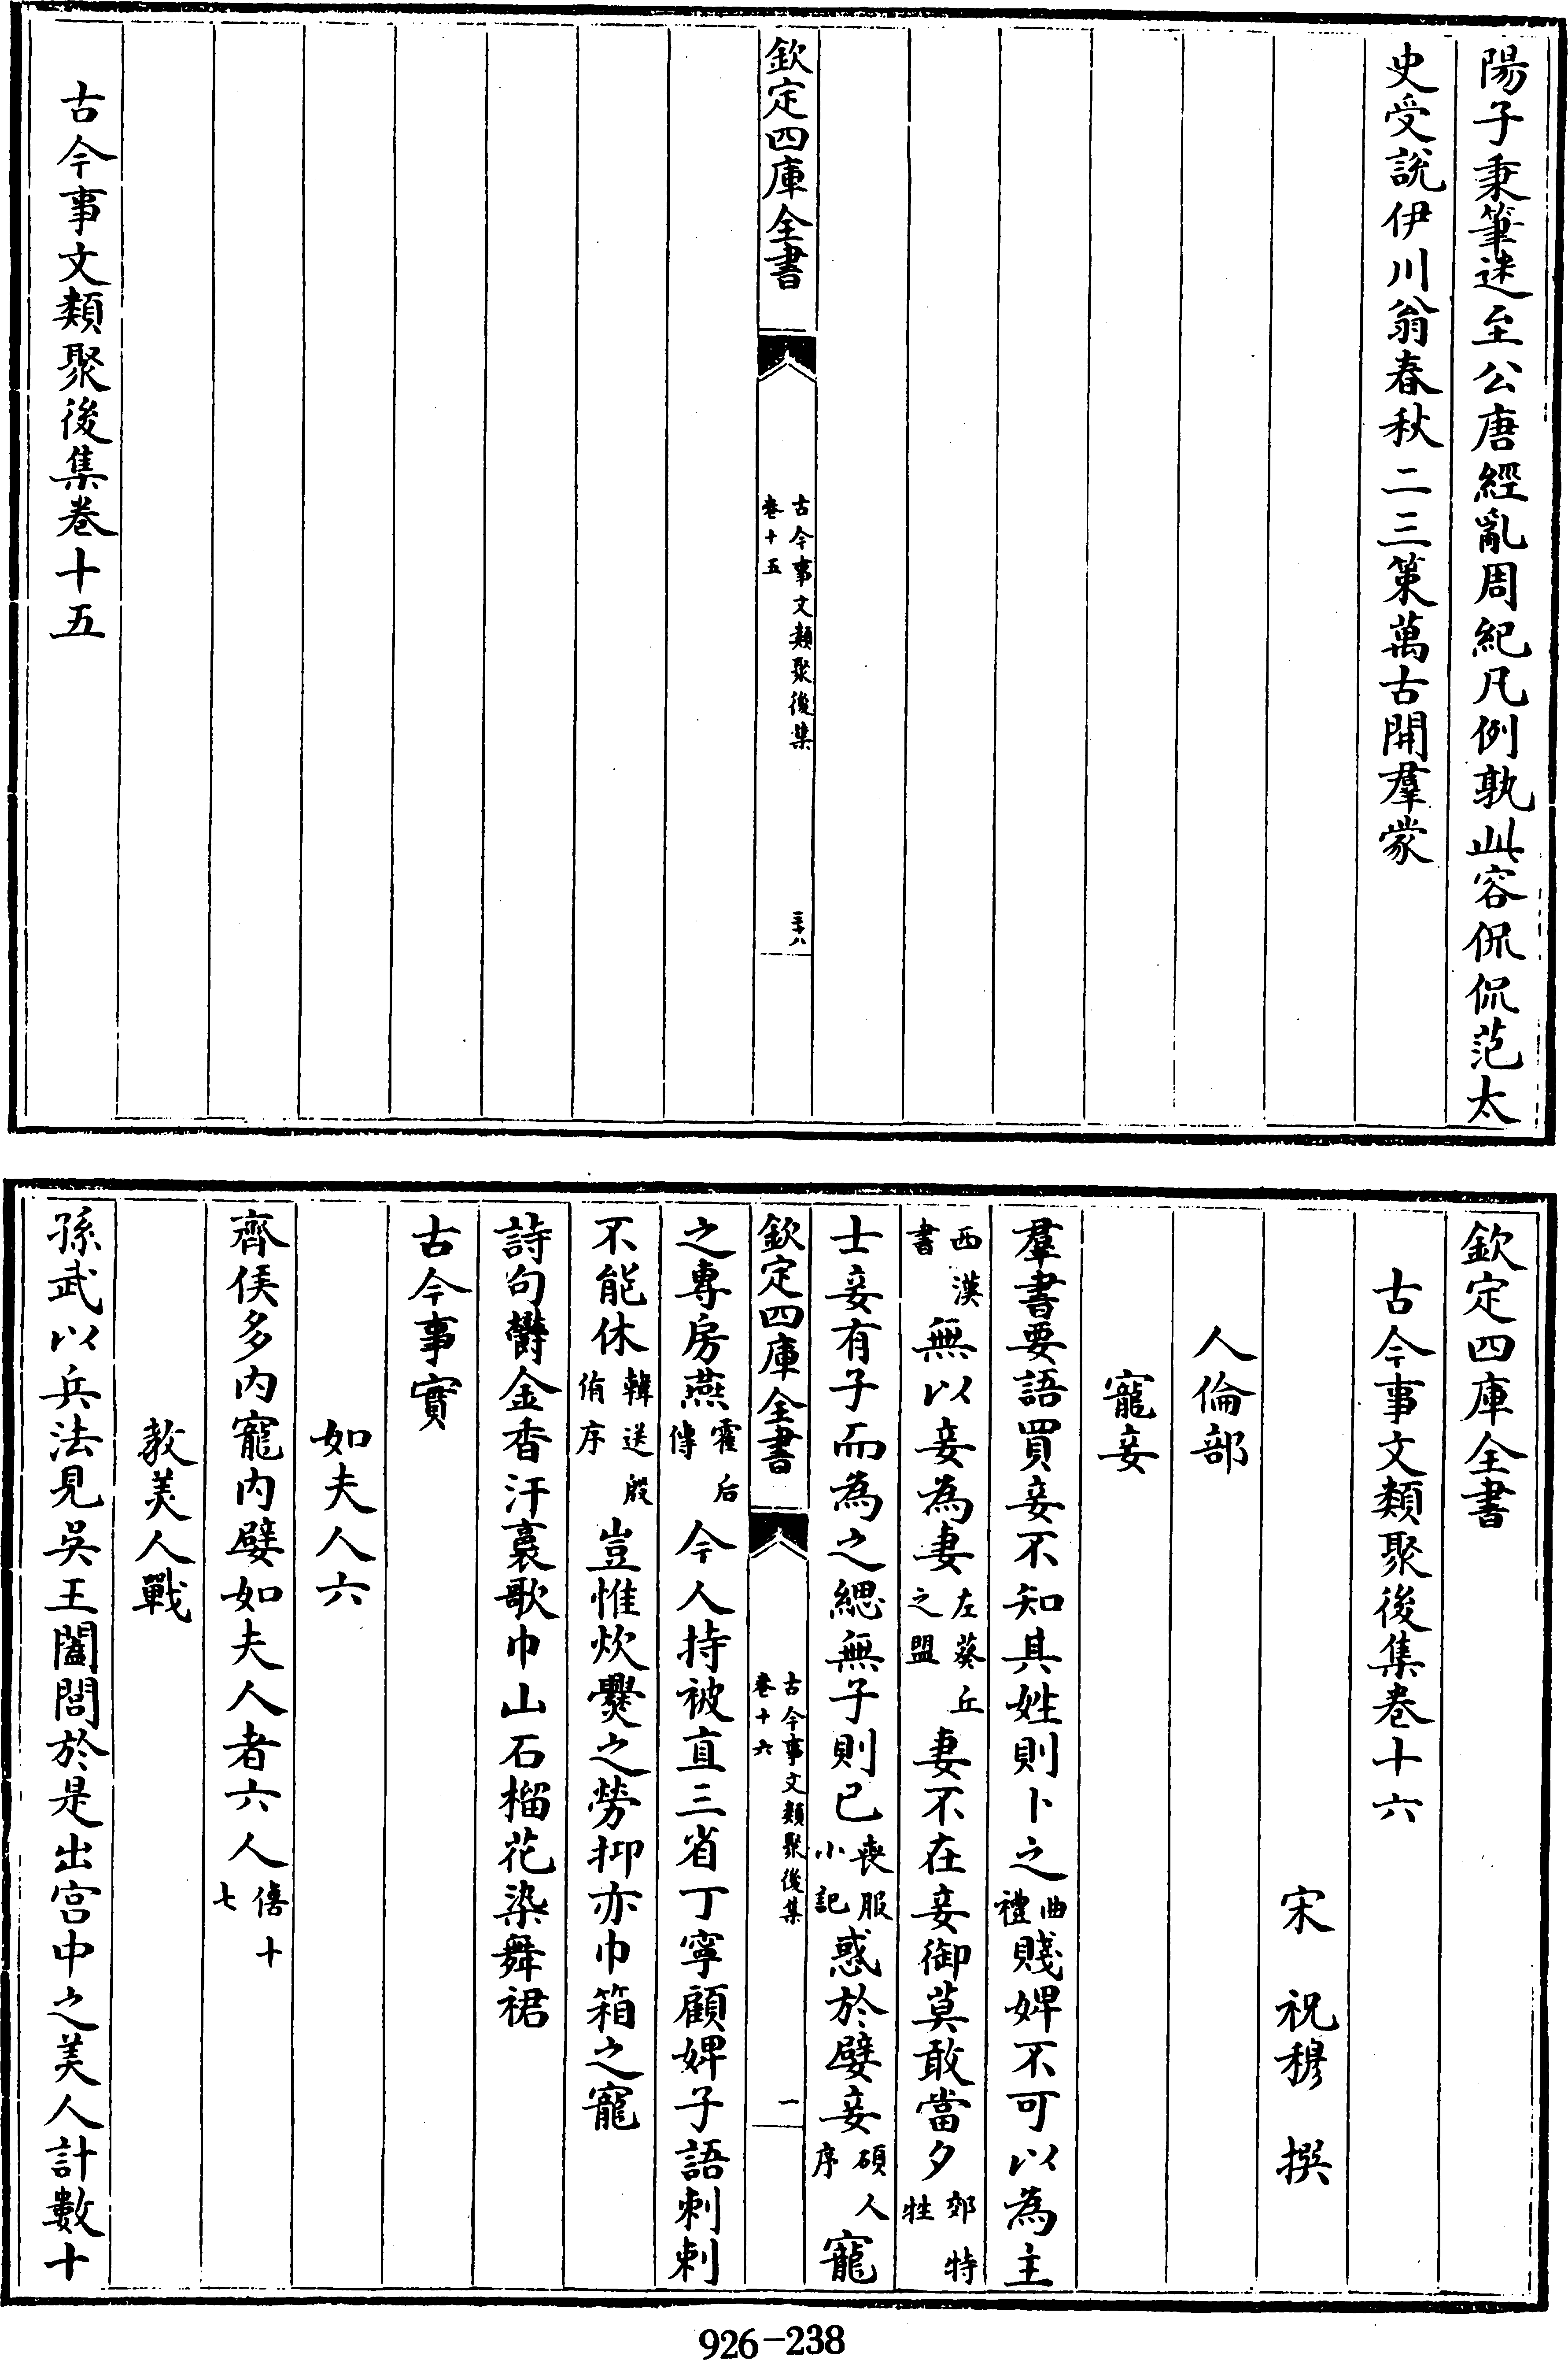 陽子秉筆迷至公唐經亂周紀凡例孰此容侃侃范太
史受説伊川翁春秋二三策萬古開羣蒙
欽定四庫全書
古今事文類聚後集
卷十五
三十八
古今事文類聚後集卷十五
欽定四庫全書
古今事文類聚後集卷十六
宋 祝穆 撰
人倫部
寵妾
羣書要語買妾不知其姓則卜之曲禮賤婢不可以為主
西漢書無以妾為妻左葵丘之盟妻不在妾御莫敢當夕郊特牲
士妾有子而為之緦無子則已喪服小記惑於嬖妾碩人序寵
欽定四庫全書
古今事文類聚後集
卷十六
一
之專房燕霍后傳今人持被直三省丁寧顧婢子語刺刺
不能休韓送殷侑序豈惟炊爨之勞抑亦巾箱之寵
詩句鬱金香汗裛歌巾山石榴花染舞裙
古今事實
如夫人六
齊侯多内寵内嬖如夫人者六人僖十七
教美人戰
孫武以兵法見吳王闔閭於是出宫中之美人計數十
926-238